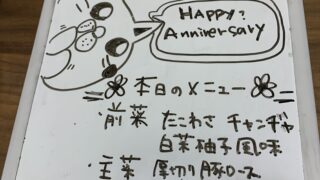 HAPPY?
Anniversary
本日のメニュー
前菜 たこわさ チャンヂャ
白菜柚子風味
主菜 厚切り豚ロース